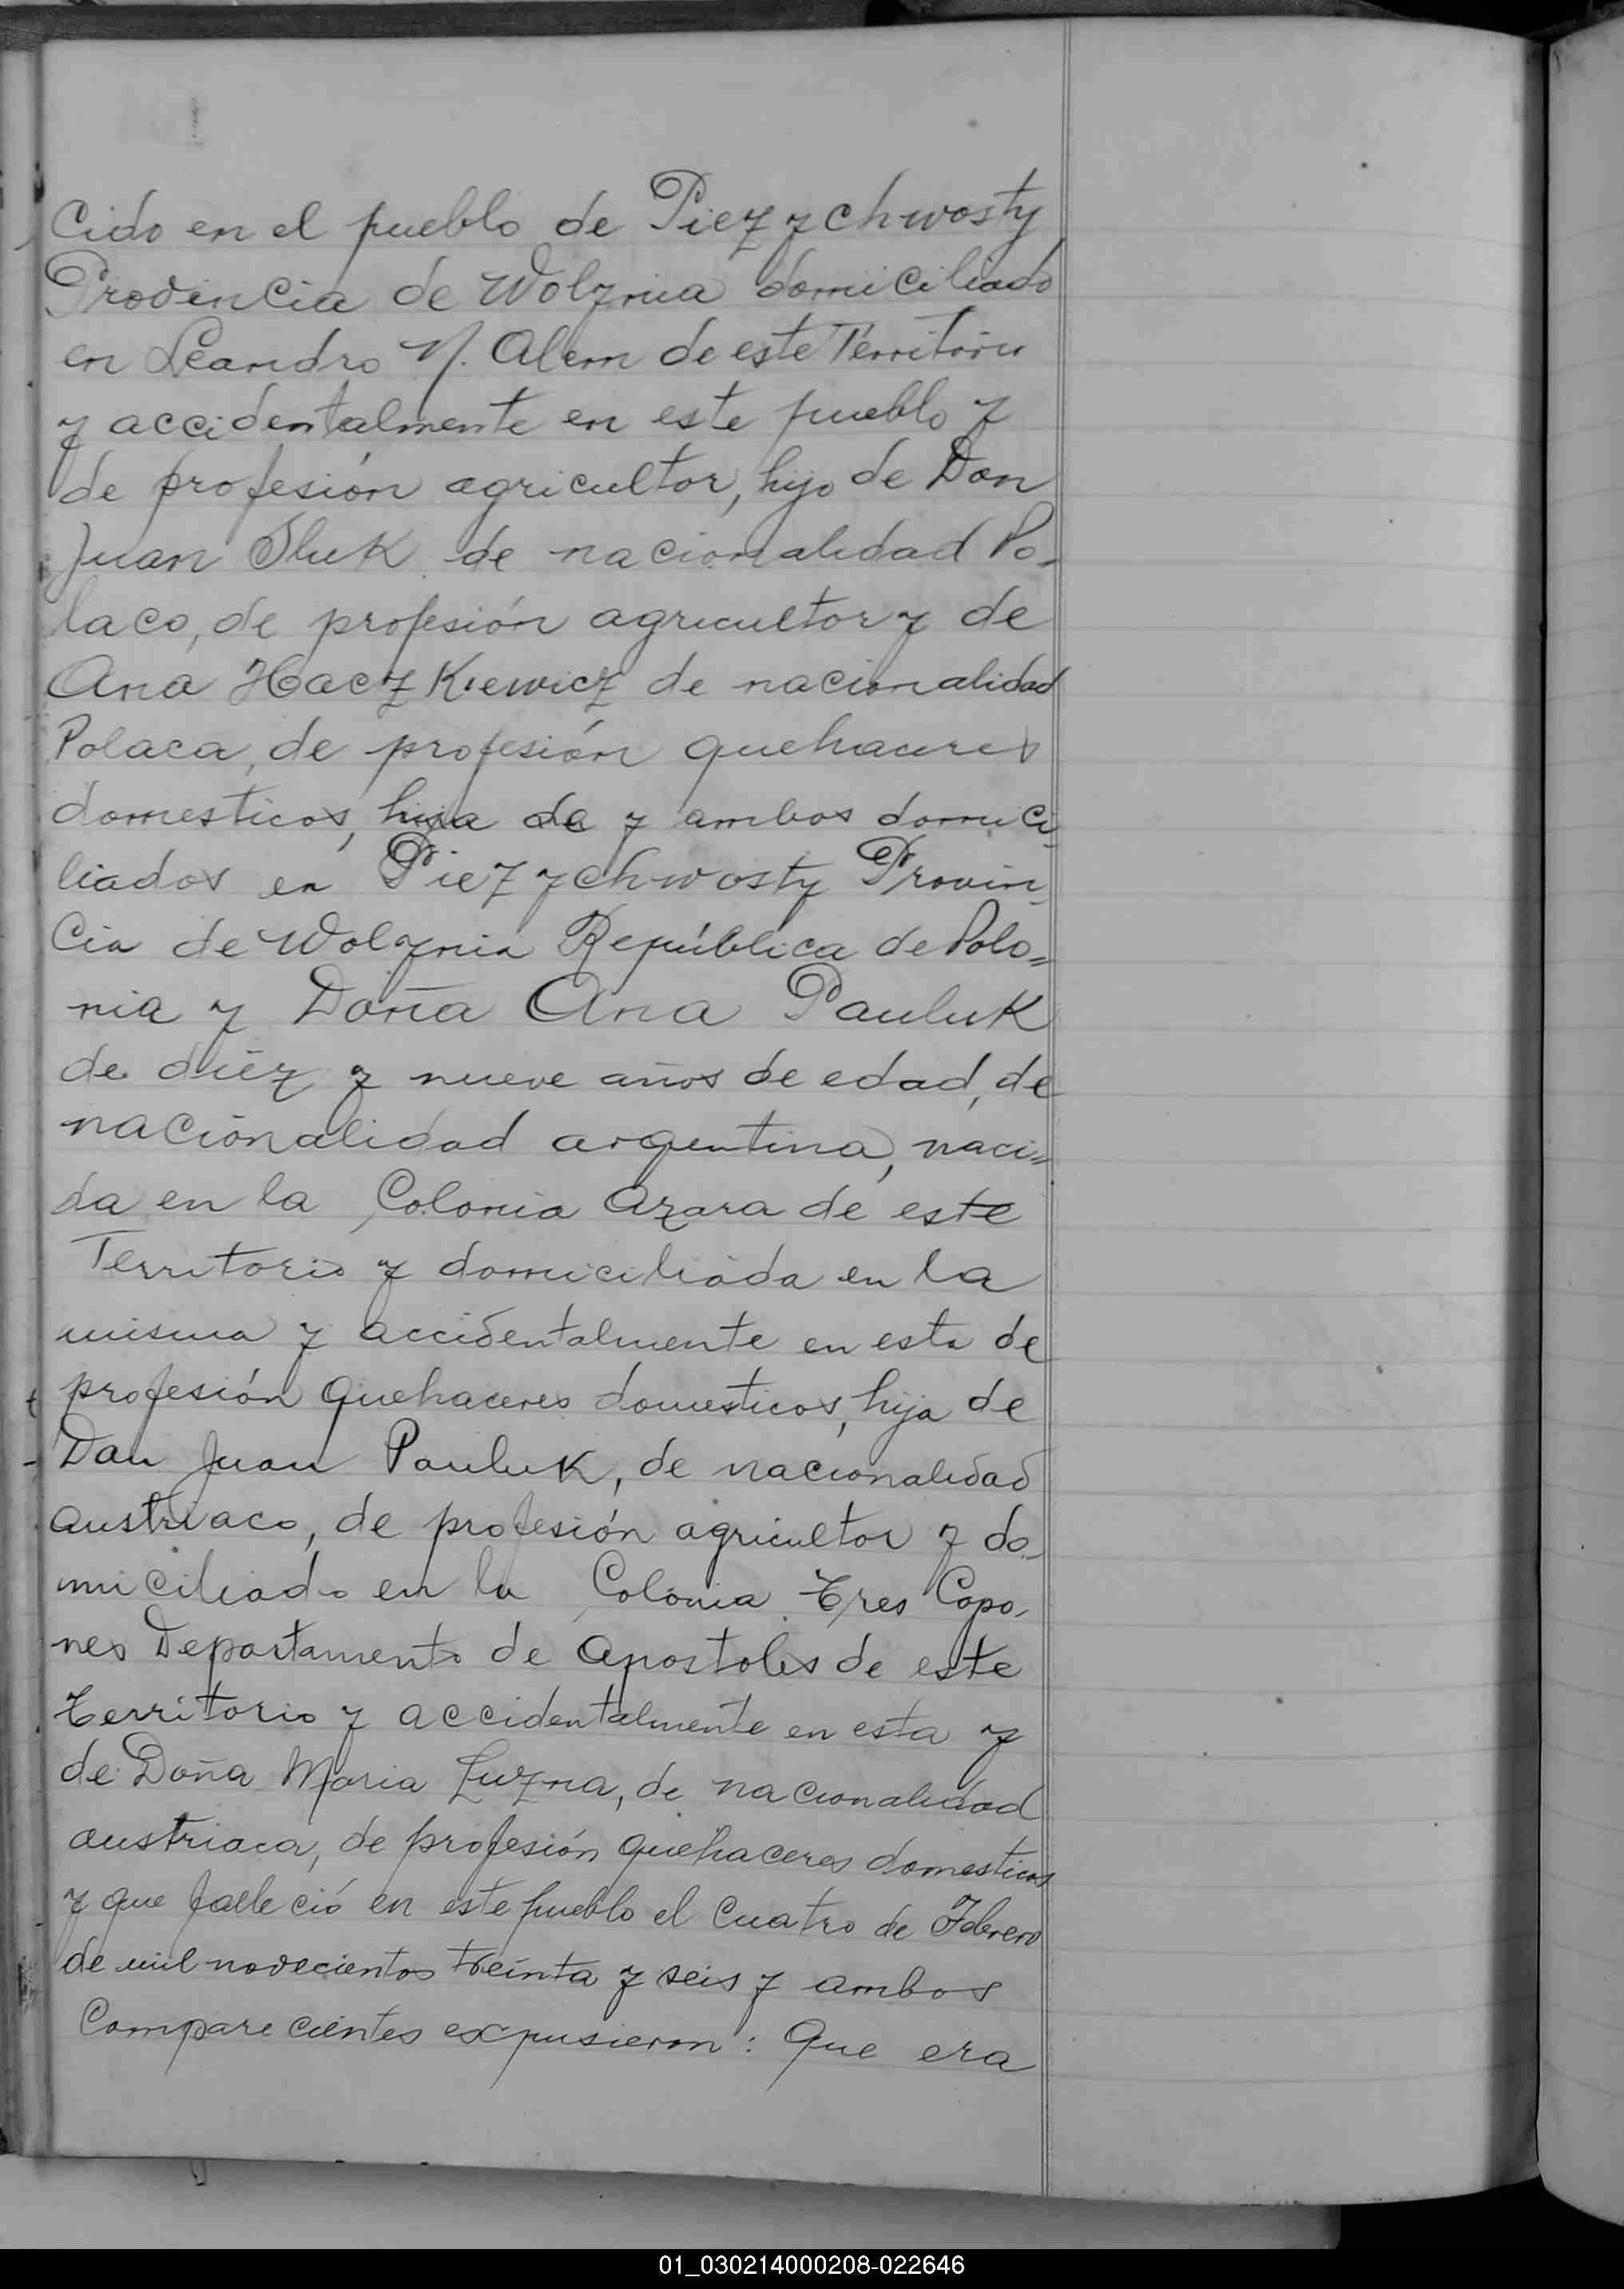 cido en el pueblo de Piezychwosty
Provincia de Wolynia domiciliado
en Leandro N. Alem de este Territorio
y accidentalmente en este pueblo y
de profesión agricultor, hijo de Don
Juan Sluk de nacionalidad Po-
laco, de profesión agricultor y de
Ana Haczkiewicz de nacionalidad
Polaca, de profesión quehaceres
domesticos, hija de y ambos domici-
liados en Piezychwosty Provin-
cia de Wolynia República de Polo=
nia y Doña Ana Pauluk
de diez y nueve años de edad, de
nacionalidad argentina, naci=
da en la Colonia Azara de este
Territorio y domiciliada en la
misma y accidentalmente en esta de
profesión quehaceres domesticos, hija de
Don Juan Pauluk, de nacionalidad
austriaco, de profesión agricultor y do-
miciliado en la Colonia Tres Capo-
nes Departamento de Apostoles de este
territorio y accidentalmente en esta y
de Doña Maria Luzna, de nacionalidad
austriaca, de profesión quehaceres domesticos
y que falleció en este pueblo el cuatro de Febrero
de mil novecientos treinta y seis y ambos
comparecientes expusieron: Que era
01_030214000208-022646